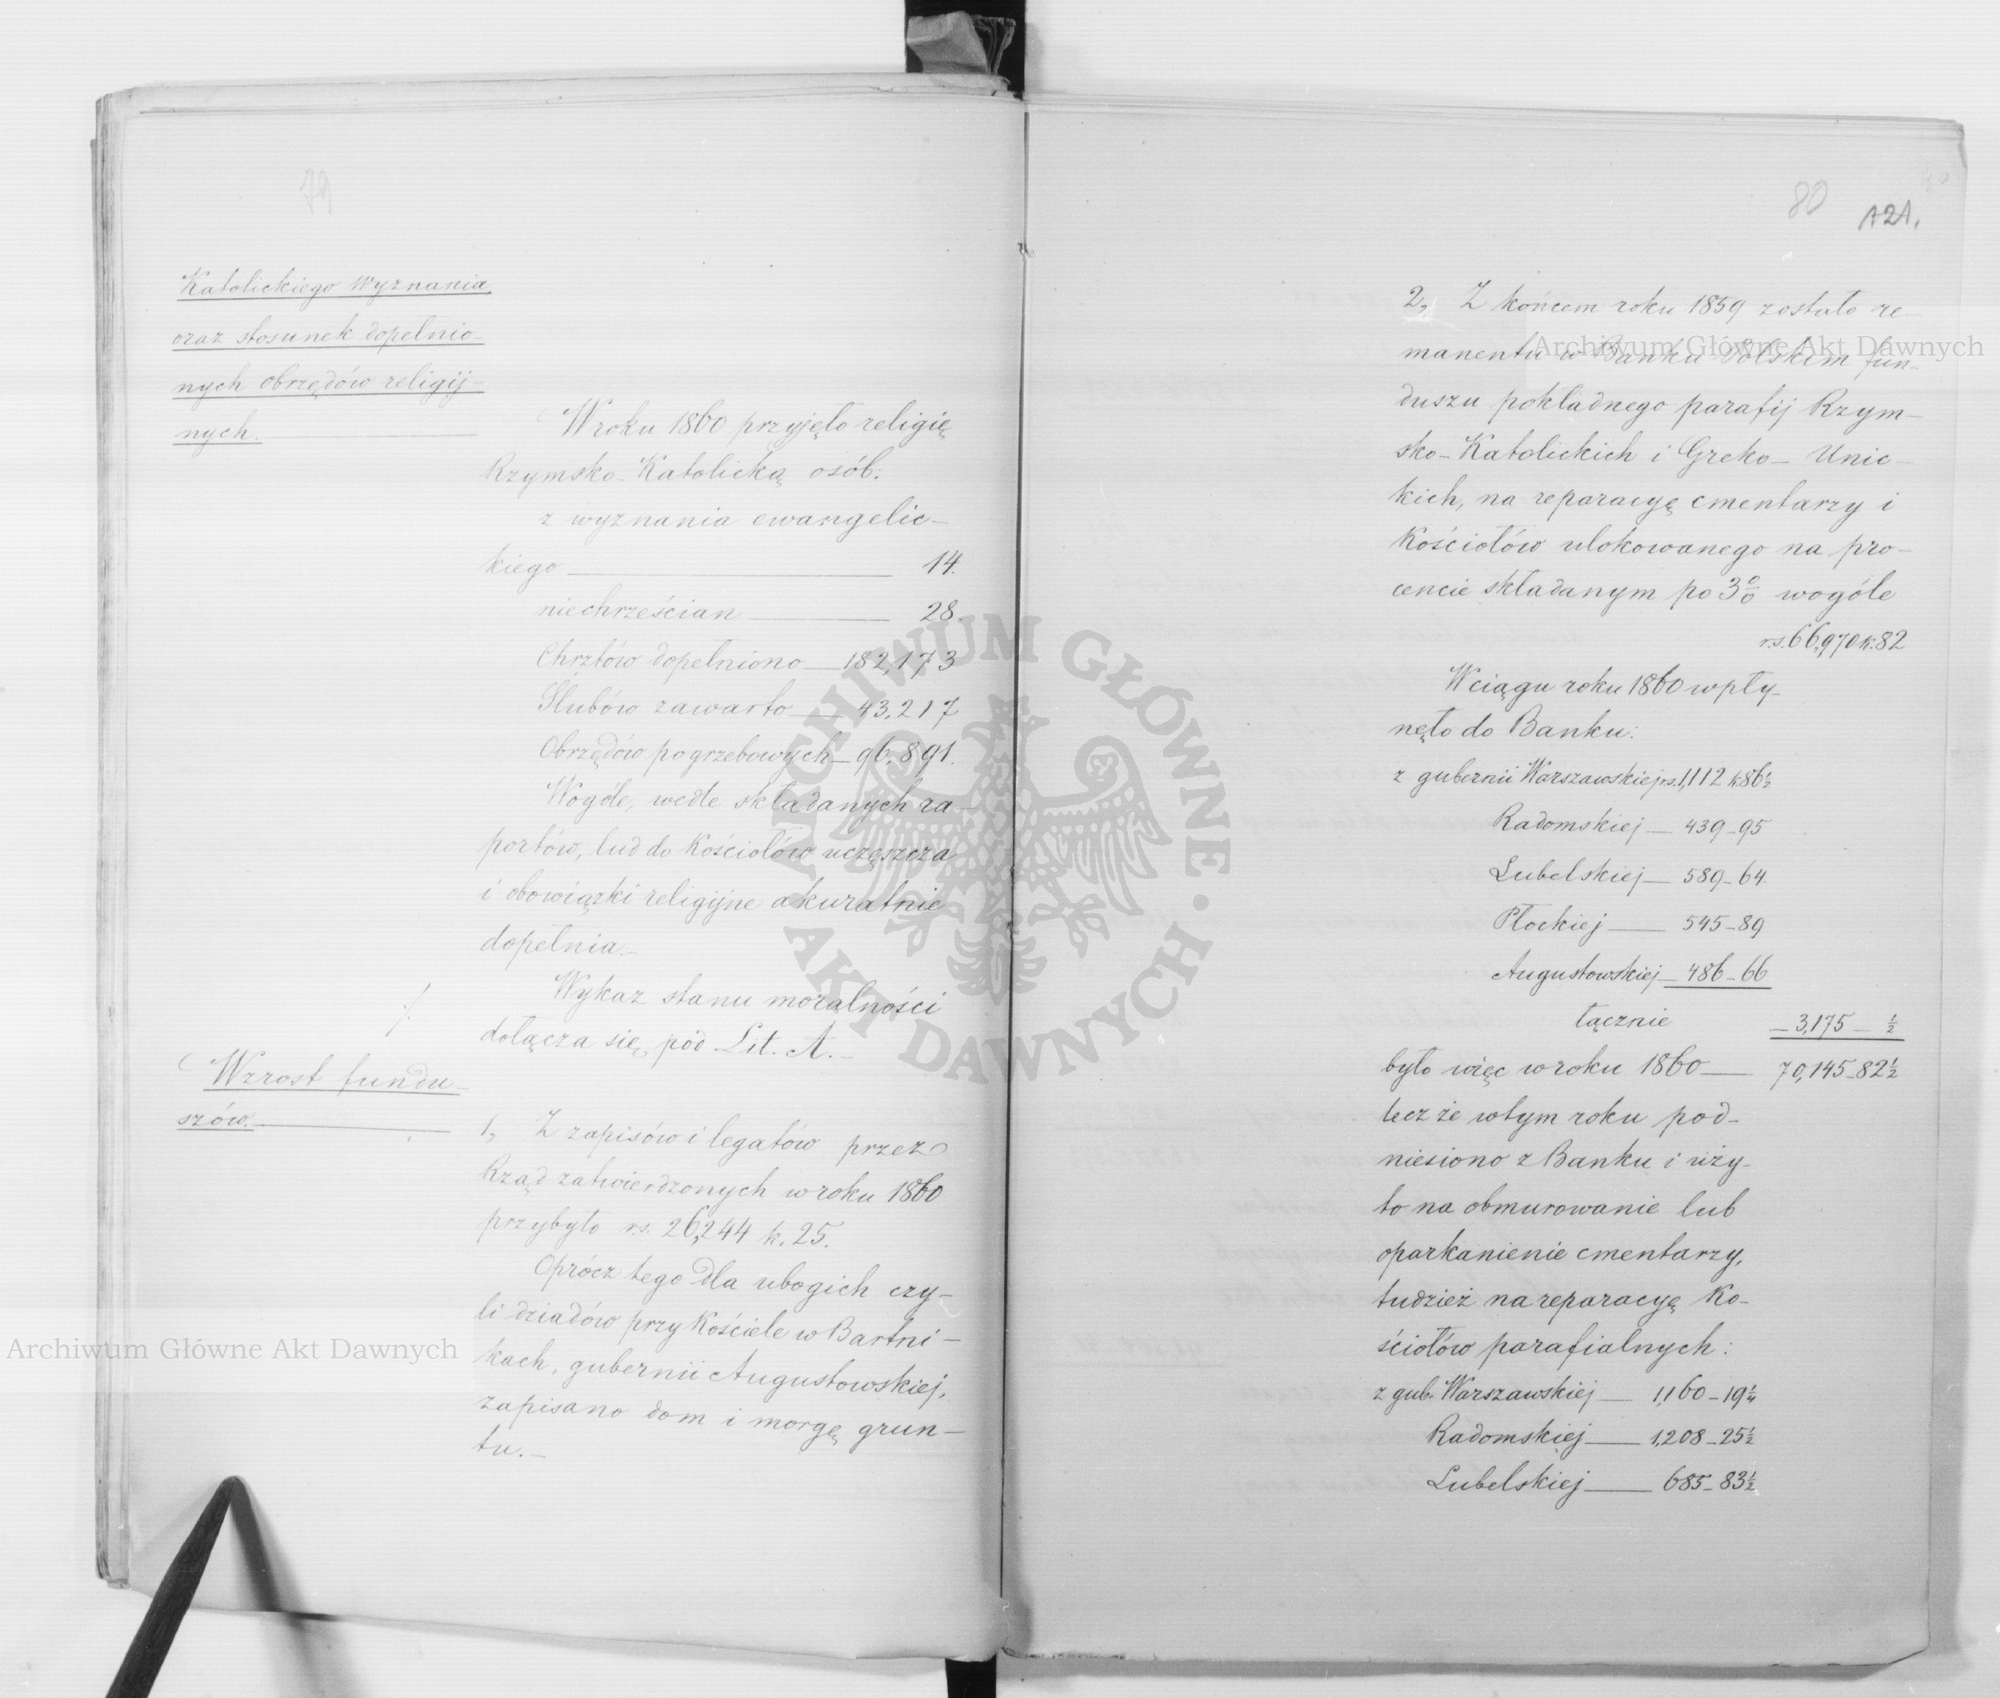 79
Katolickiego Wyznania
oraz stosunek dopełnio-
nych obrzędów religij-
nych.
W roku 1860 przyjęto religię
Rzymsko-Katolicką osób:
z wyznania ewangelic-
kiego 14.
niechrześcian 28.
Chrztów dopełniono 182,173
Ślubów zawarto 43,217
Obrzędów pogrzebowych 96,891.
Wogóle, wedle składanych ra-
portów, lud do Kościołów uczęszcza
i obowiązki religijne akuratnie
dopełnia.-
Wykaz stanu moralności
dołącza się pod Lit. A.-
Wzrost fundu-
szów.
1, Z zapisów i legatów przez
Rząd zatwierdzonych w roku 1860
przybyło rs. 26,244 k. 25.
Oprócz tego dla ubogich czy-
li dziadów przy Kościele w Bartni-
kach, gubernii Augustowskiej,
zapisano dom i morgę grun-
tu.-
80
121.
2, Z końcem roku 1859 zostało re-
manentu w Banku Polskim fun-
duszu pokładnego parafij Rzym-
sko-Katolickich i Greko-Unic-
kich, na reparacyę cmentarzy i
Kościołów ulokowanego na pro-
cencie składanym po 3% wogóle
rs. 66,970 k. 82
W ciągu roku 1860 wpły-
nęło do Banku:
z gubernii Warszawskiej rs. 1,112 k. 86½
Radomskiej 439-95
Lubelskiej 589-64.
Płockiej 545-89
Augustowskiej 486-66
łącznie 3,175 - ½
było więc w roku 1860 70,145-82½
lecz że w tym roku pod-
niesiono z Banku i uży-
to na obmurowanie lub
oparkanienie cmentarzy,
tudzież na reparacyę Ko-
ściołów parafialnych:
z gub. Warszawskiej 1,160-19¼
Radomskiej 1,208-25½
Lubelskiej 685-83½
Archiwum Główne Akt Dawnych
Archiwum Główne Akt Dawnych
ARCHIWUM GŁÓWNE · AKT DAWNYCH ·